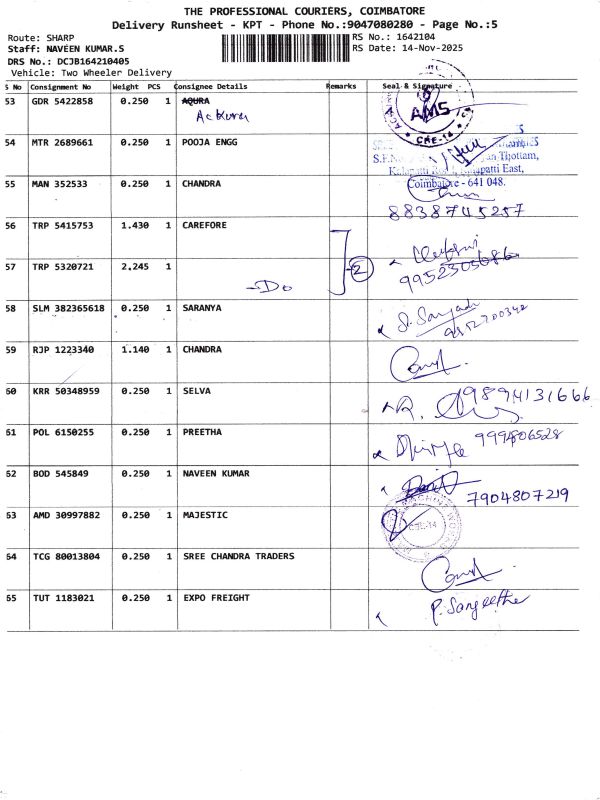 THE PROFESSIONAL COURIERS, COIMBATORE
Delivery Runsheet - KPT - Phone No.:9047080280 - Page No.:5
Route: SHARP RS No.: 1642104
Staff: NAVEEN KUMAR.S RS Date: 14-Nov-2025
DRS No.: DCJB164210405
Vehicle: Two Wheeler Delivery
S No Consignment No Weight PCS Consignee Details Remarks Seal & Signature
53 GDR 5422858 0.250 1 AQURA
AMS
CBE-14
54 MTR 2689661 0.250 1 POOJA ENGG
Thottam,
East,
Coimbatore - 641 048.
55 MAN 352533 0.250 1 CHANDRA
8838745257
56 TRP 5415753 1.430 1 CAREFORE
2
57 TRP 5320721 2.245 1
-Do
58 SLM 382365618 0.250 1 SARANYA
9952700342
59 RJP 1223340 1.140 1 CHANDRA
60 KRR 50348959 0.250 1 SELVA
9894131666
61 POL 6150255 0.250 1 PREETHA
62 BOD 545849 0.250 1 NAVEEN KUMAR
7904807219
63 AMD 30997882 0.250 1 MAJESTIC
64 TCG 80013804 0.250 1 SREE CHANDRA TRADERS
65 TUT 1183021 0.250 1 EXPO FREIGHT
P. Sangeetha